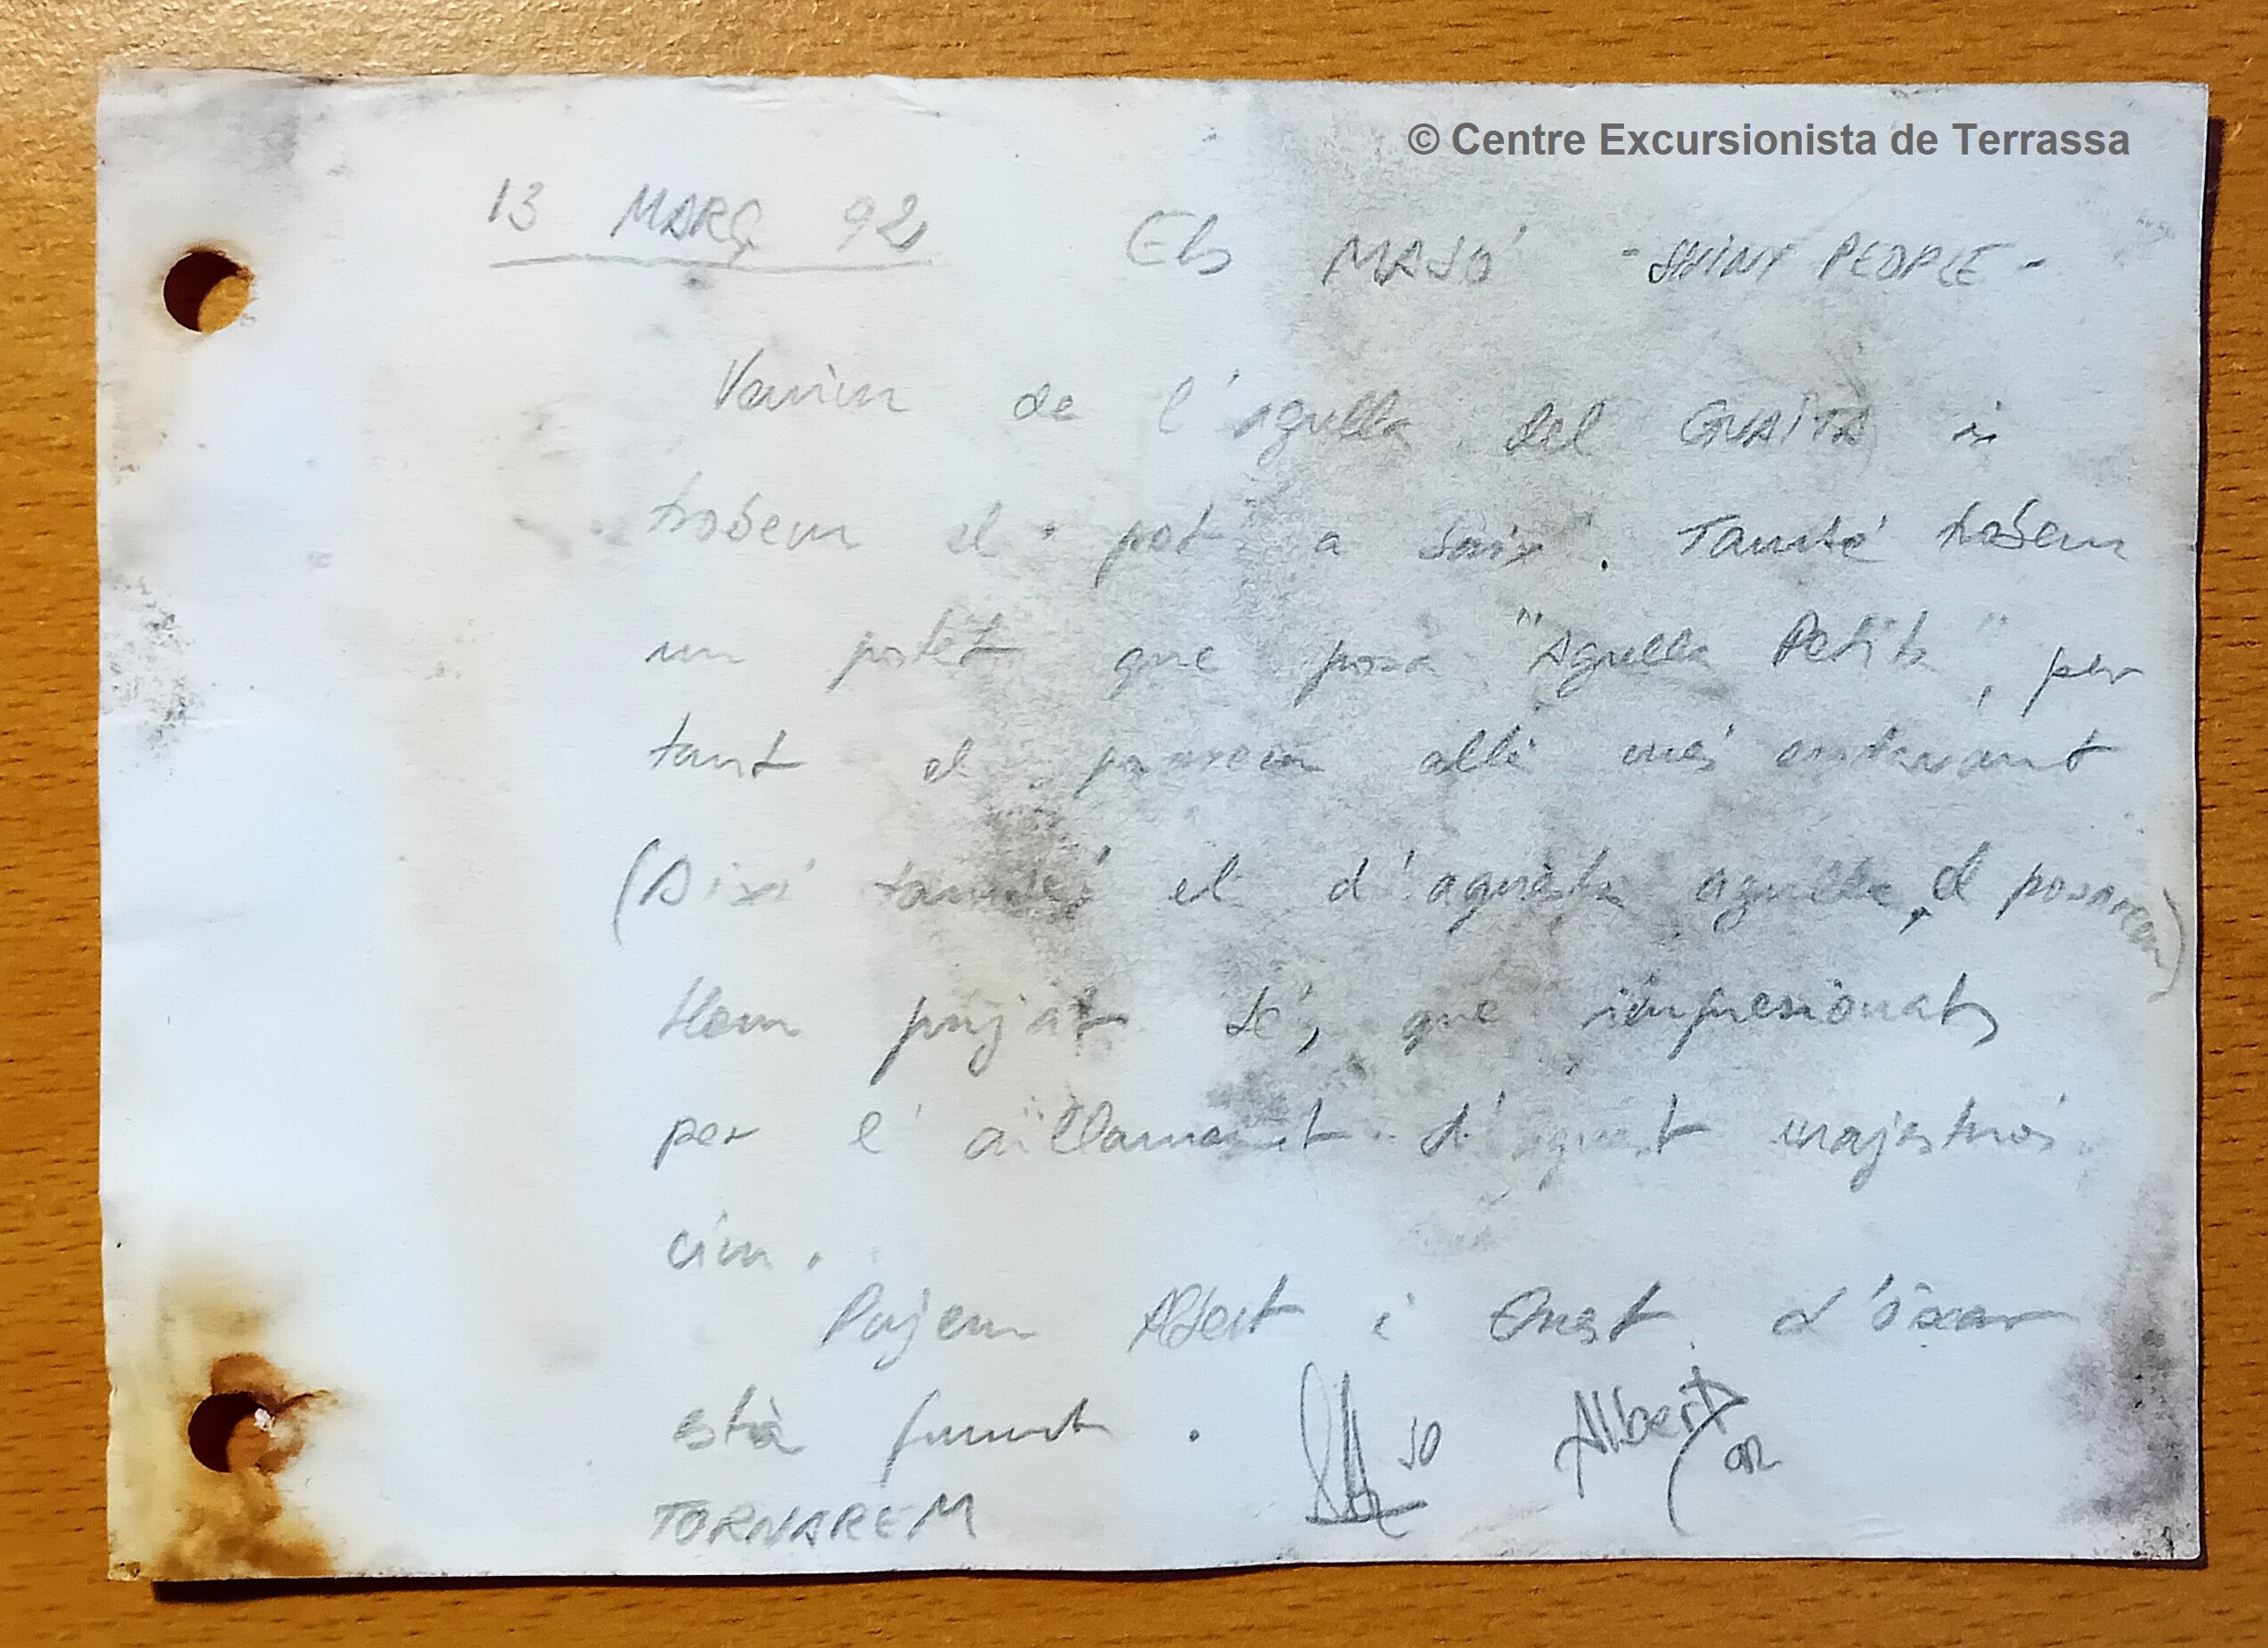 © Centre Excursionista de Terrassa
13 MARÇ 92 Els MAJÓ - SHINY PEOPLE -
Venim de l'agulla del GUAITA i
trobem el pot a baix. També trobem
un potet que posa "Agulla Petita", per
tant el posarem allà més endavant
(Així també el d'aquesta agulla, el posarem)
Hem pujat bé, que impresionats
per l'aïllament d'aquest majestuós
cim.
Pujem Albert i Ernest. L'Òscar
està fumut.
Albert
TORNAREM